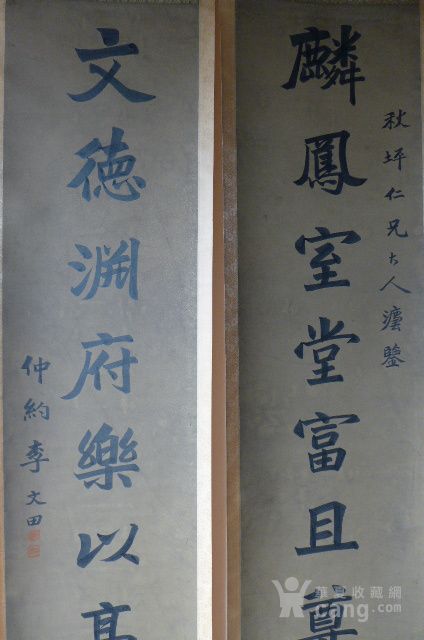 秋坪仁兄大人灋鑒
麟鳳室堂富且尊
文德淵府樂以高
仲約李文田
華夏收藏網
cang.com